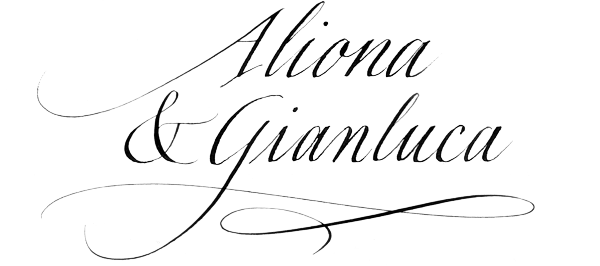 Aliona
& Gianluca